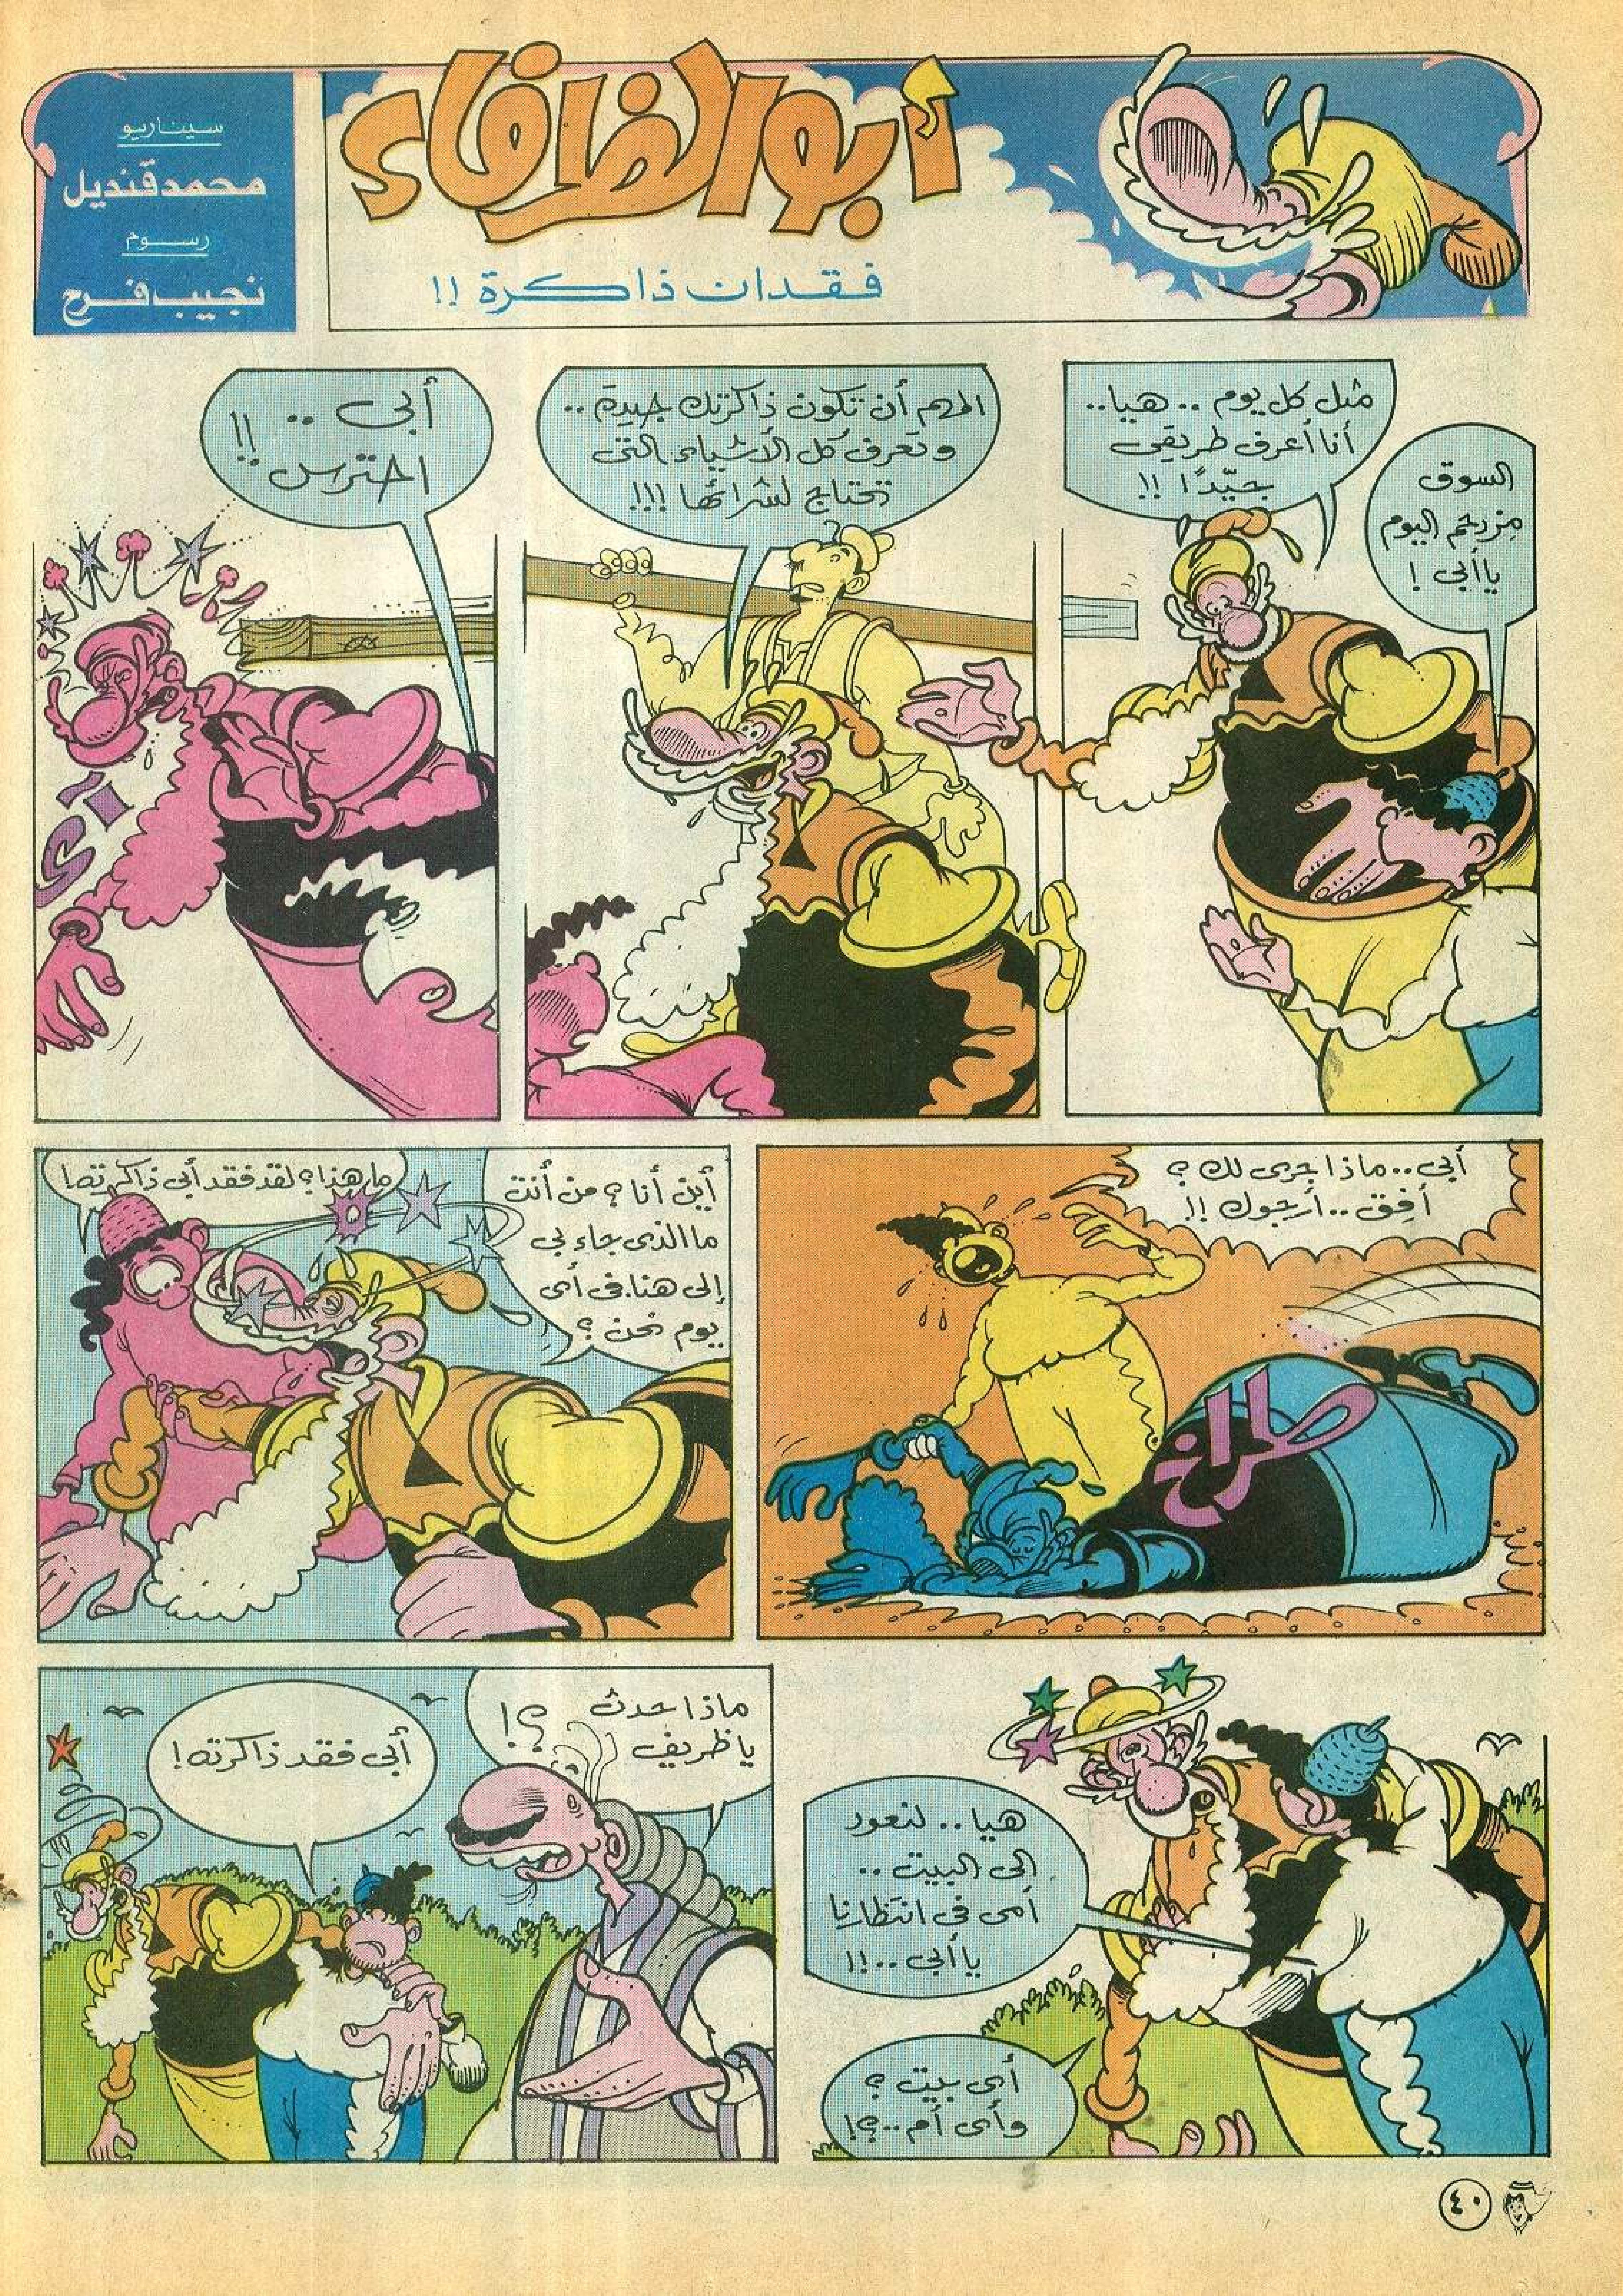 أبو الظرفاء
فقدان ذاكرة !!
سيناريو
محمد قنديل
رسوم
نجيب فرح
السوق
مزدحم اليوم
يا أبى !
مثل كل يوم .. هيا..
أنا أعرف طريقى
جيّدًا !!
المهم أن تكون ذاكرتك جيدة ..
وتعرف كل الأشياء التى
تحتاج لشرائها !!!
أبى .. !!
احترس
آى
أبى.. ماذا جرى لك ؟
أفِق .. أرجوك !!
طراخ
أين أنا ؟ من أنت
ما الذى جاء بى
إلى هنا. فى أى
يوم نحن ؟
ما هذا ؟ لقد فقد أبى ذاكرته !
هيا .. لنعود
إلى البيت ..
أمى فى انتظارنا
يا أبى ..!!
أى بيت ؟
وأى أم ..؟!
ماذا حدث
يا ظريف ؟!
أبى فقد ذاكرته !
٤٠